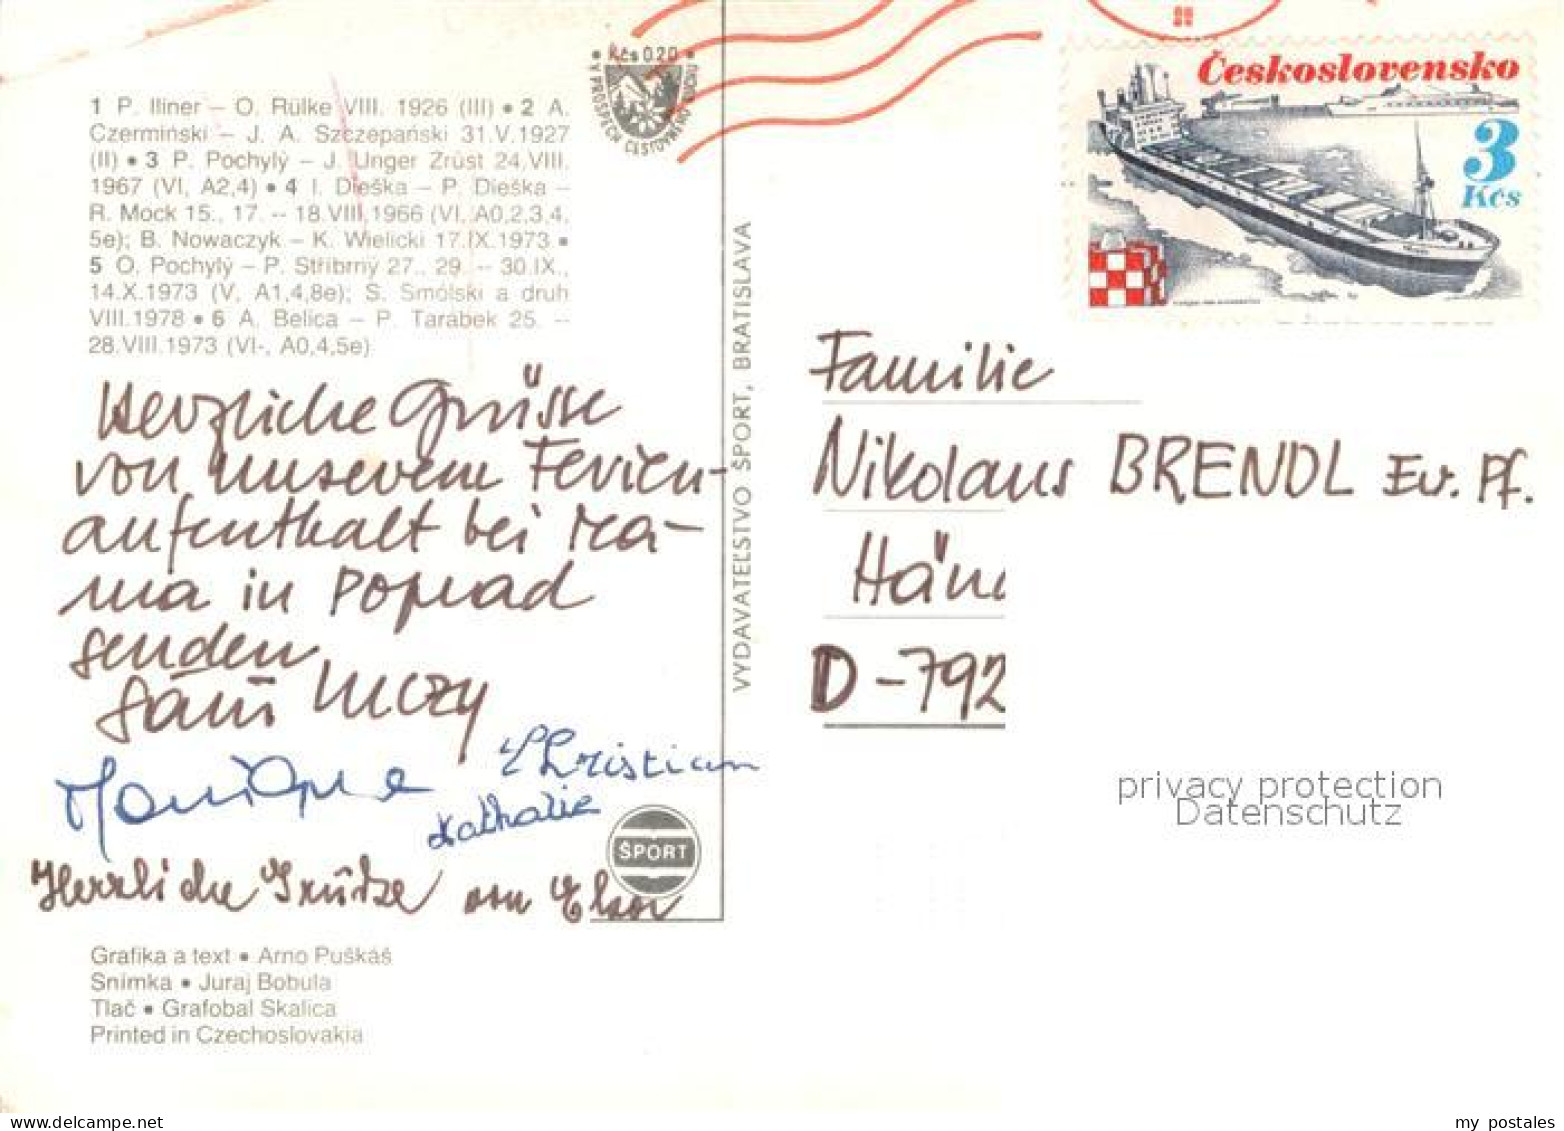 Kčs 0.20
V PROSPECH CESTOVNÉHO RUCHU
Československo
3
Kčs
1 P. Illner – O. Rülke VIII. 1926 (III) • 2 A.
Czermiński – J. A. Szczepański 31.V.1927
(II) • 3 P. Pochylý – J. Unger Zrúst 24.VIII.
1967 (VI, A2,4) • 4 I. Dieška – P. Dieška –
R. Mock 15., 17. – 18.VIII.1966 (VI, A0,2,3,4,
5e); B. Nowaczyk – K. Wielicki 17.IX.1973 •
5 O. Pochylý – P. Stříbrný 27., 29. – 30.IX.,
14.X.1973 (V, A1,4,8e); S. Smólski a druh
VIII.1978 • 6 A. Belica – P. Tarábek 25. –
28.VIII.1973 (VI-, A0,4,5e)
Herzliche Grüsse
von unserem Ferien-
aufenthalt bei Ma-
ma in Poprad
senden
Monique Christian
Nathalie
Herzliche Grütze von
ŠPORT
VYDAVATEĽSTVO ŠPORT, BRATISLAVA
Familie
Nikolaus BRENDL Ev. Pf.
Hän
D-792
privacy protection
Datenschutz
Grafika a text • Arno Puškáš
Snímka • Juraj Bobula
Tlač • Grafobal Skalica
Printed in Czechoslovakia
www.delcampe.net
my_postales